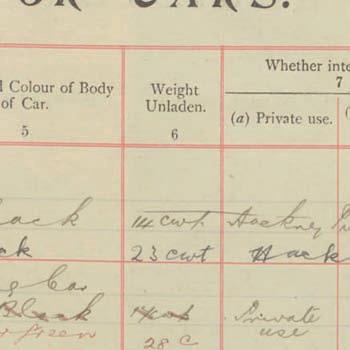 OR CARS.
d Colour of Body
of Car.
5
Weight
Unladen.
6
Whether inte
7
(a) Private use.
(
ack
14 cwt
Hackney
ck
23 cwt
Hack
g Car
Black
14 cwt
Private
use
Green
28 c